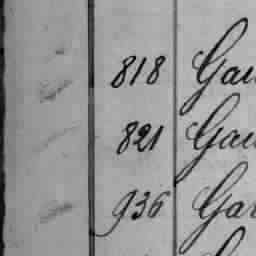 818 Gau
821 Gau
936 Gar